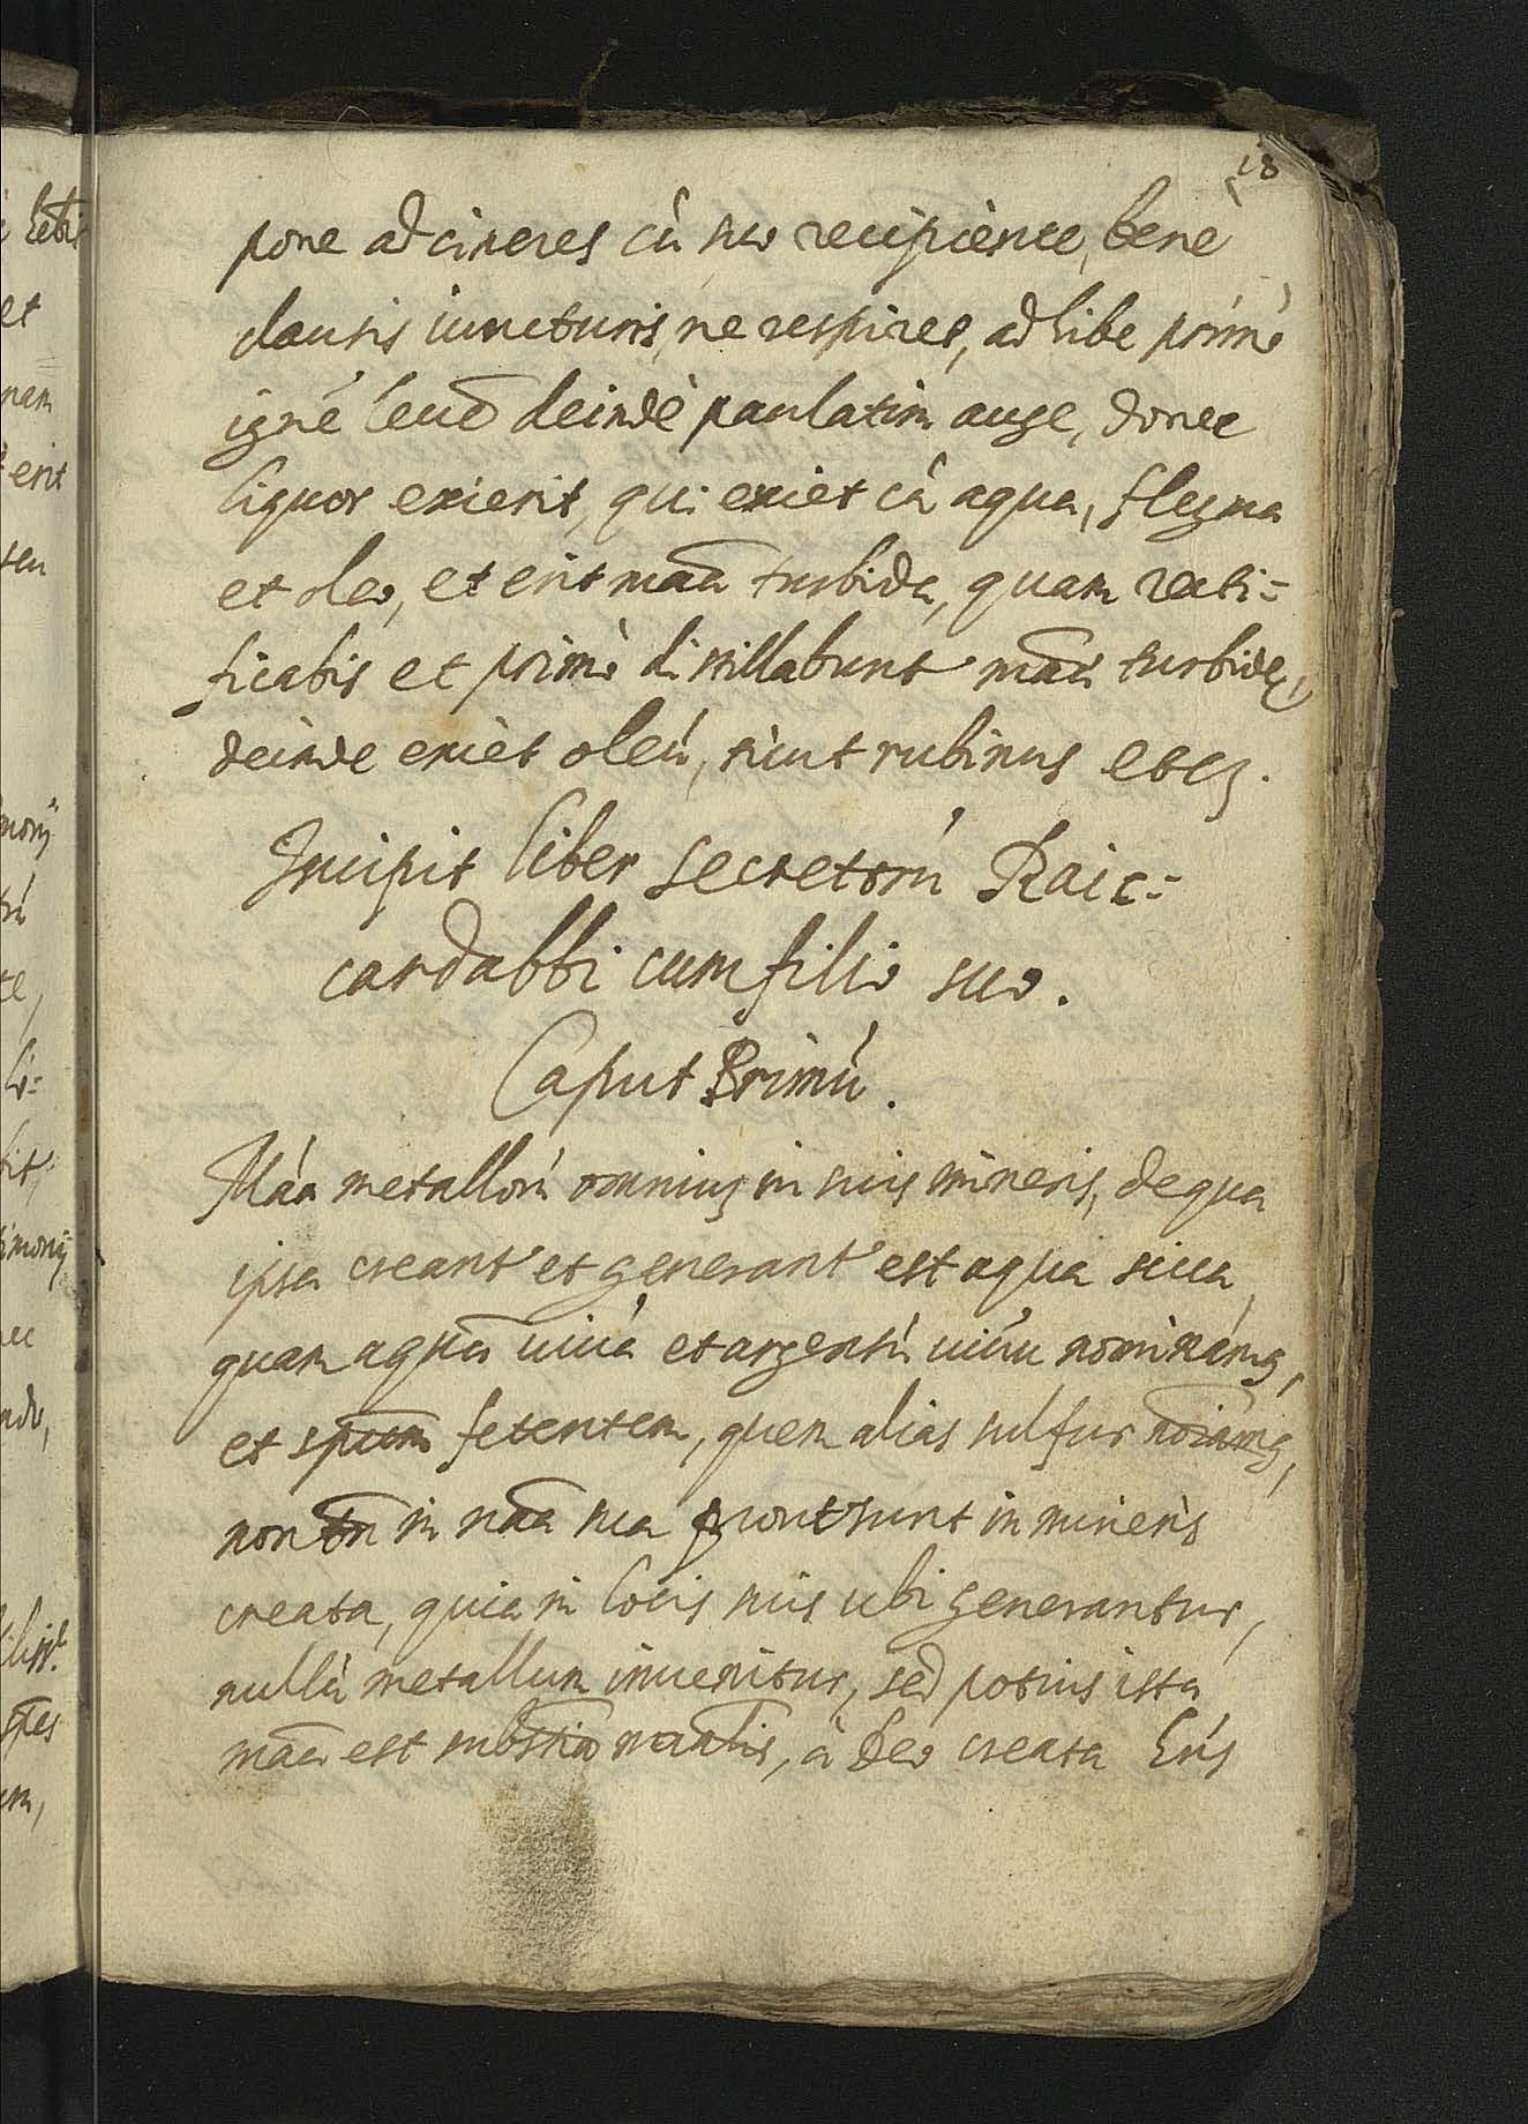 18
pone ad cineres cù suo recipiente, bene
clausis iuncturis, ne respiret, adhibe primò
igné leué deindè paulatim auge, donec
liquor exierit, qui exiet cù aqua, flegma
et oleo, et erit maã turbida, quam recti=
ficabis et primò distillabunt maã turbidę,
deinde exièt oleú, sicut rubinus etcȝ.
Incipit liber secretorú Raic=
cardabbi cum filio suo.
Caput Primú.
Máa metallorú omniuȝ in suis mineris, de qua
ipsa creant' et generant' est aqua sicca,
quam aquã uiuá et argentú uiúu nominámꝰ,
et spũm fetentem, quem alias sulfur noĩamꝰ,
non tñ in naã sua prout sunt in mineris
creata, quia in locis suis ubi generantur,
nullù metallum inuenitur, sed potius ista
maã est subst̃ia naãlis, à Deo creata hńs